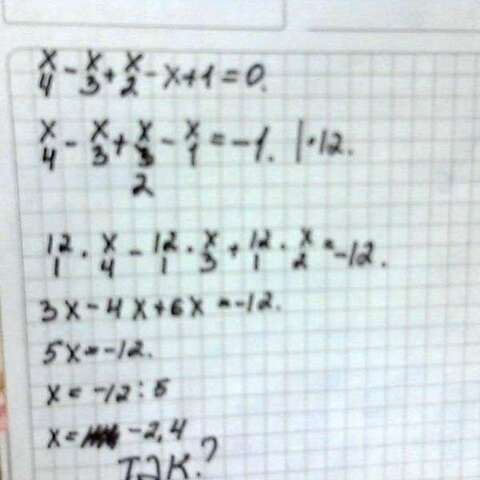 x/4 - x/3 + x/2 - x + 1 = 0.
x/4 - x/3 + x/2 - x/1 = -1. | · 12.
12/1 · x/4 - 12/1 · x/3 + 12/1 · x/2 = -12.
3x - 4x + 6x = -12.
5x = -12.
x = -12 : 5
x = -2,4
ТАК?